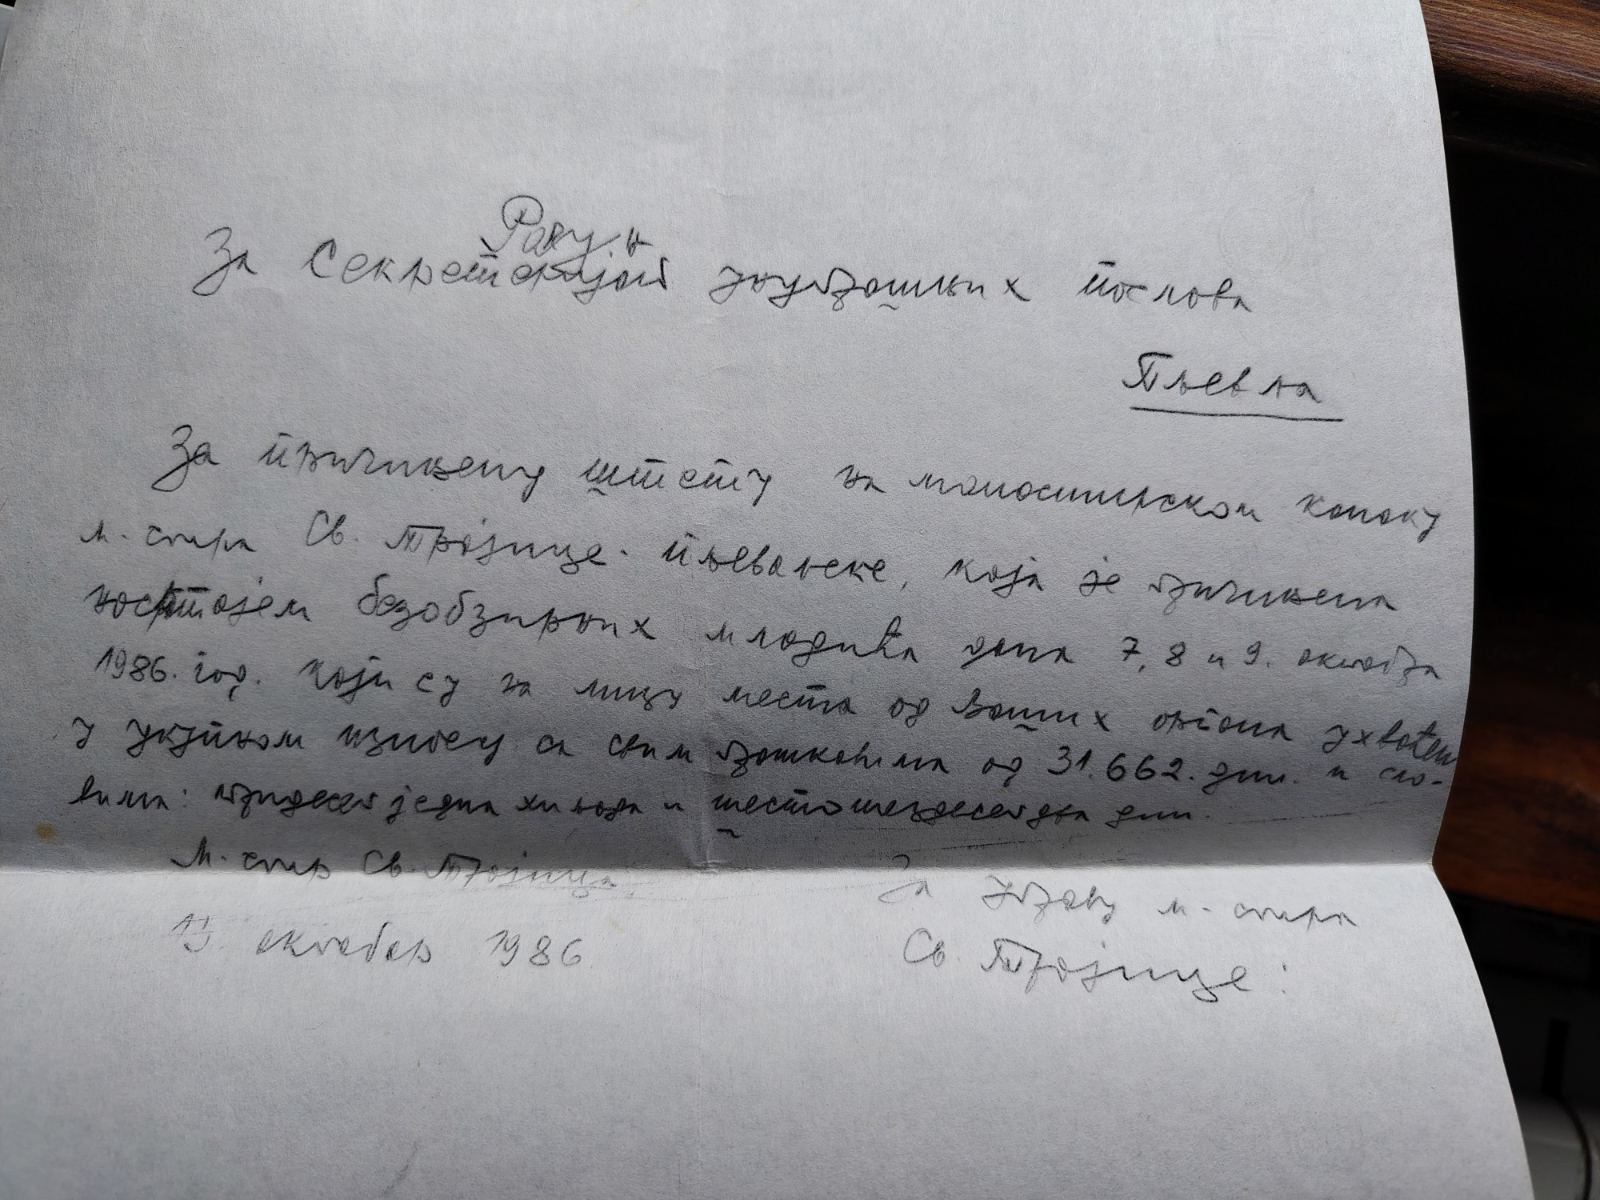 Рачун
За Секретаријат унутрашњих послова
Пљевља
За причињену штету на манастирском конаку
м-стира Св. Тројице пљеваљске, која је причињена
безобзирних младића дана 7, 8 и 9. октобра
1986. год. који су на лицу места од Ваших органа ухваћени
у укупном износу са свим трошковима од 31.662. дин. и сло-
вима: тридесет једна хиљада и шестошездесетдва дин.
М-стир Св. Тројица
октобар 1986
За управу м-стира
Св. Тројице: